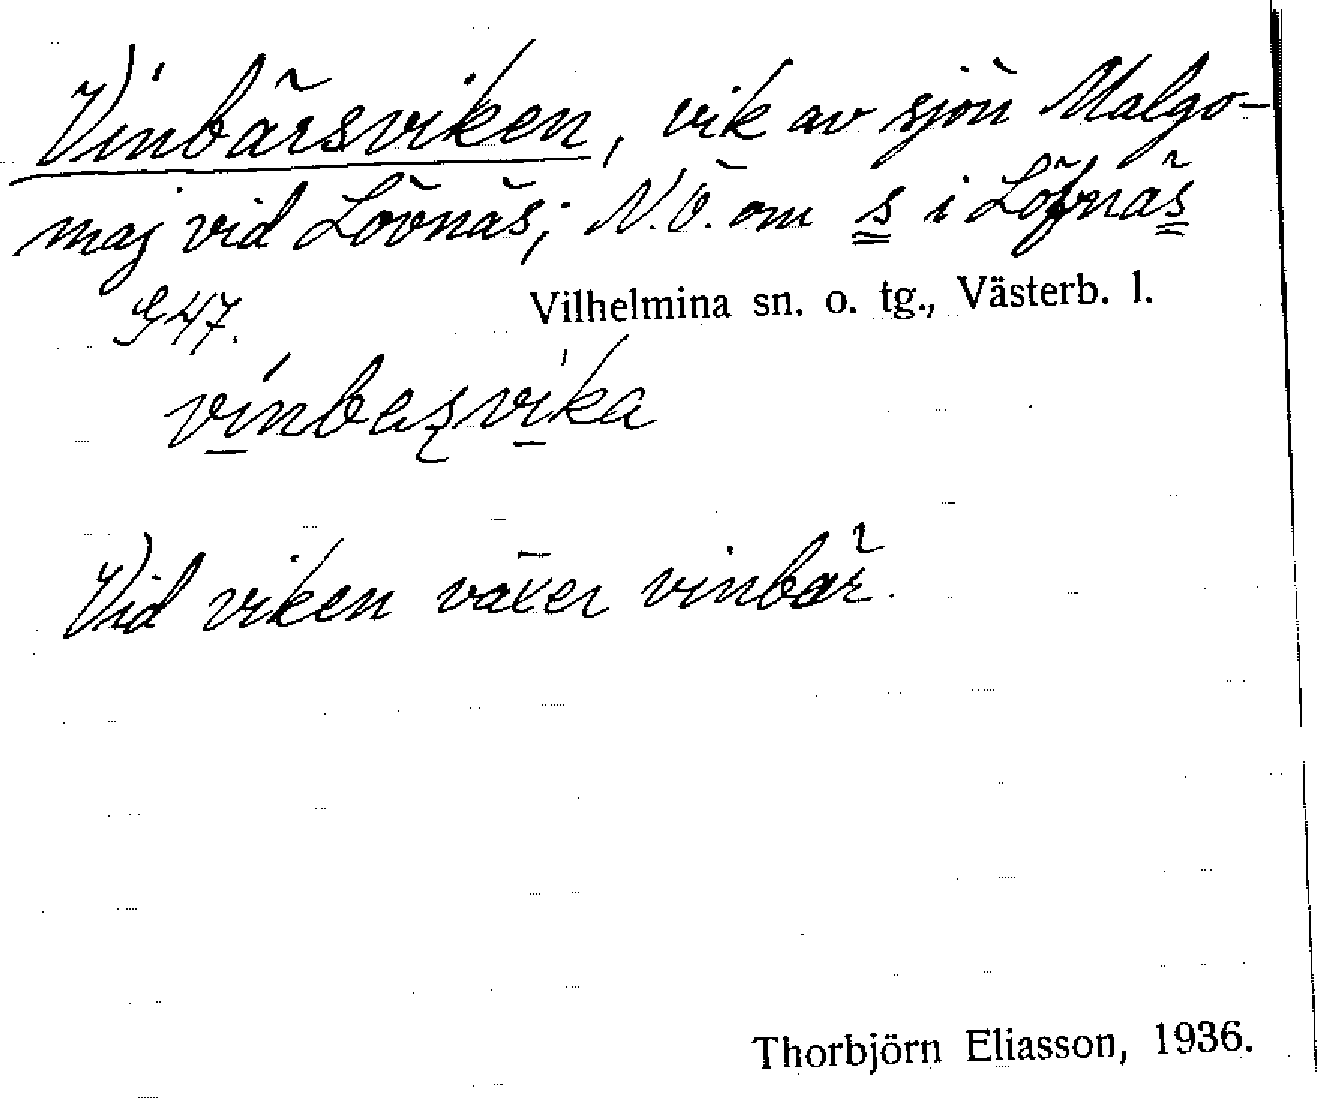 Vinbärsviken, vik av sjön Malgo-
maj vid Lövnäs; N.Ö. om s i Löfnäs
G47.
Vilhelmina sn. o. tg., Västerb. l.
Vid viken växer vinbär.
Thorbjörn Eliasson, 1936.